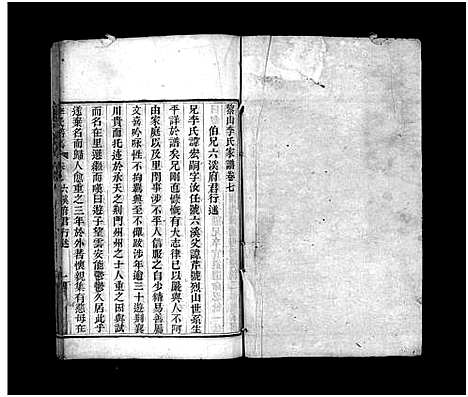 黎山李氏家譜卷七
伯兄六溪府君行述
兄李氏諱宏嗣字汝任號六溪父諱芹號烈山世系生
平詳於譜矣兄剛直慷慨有大志律已以嚴與人不阿
由家庭以及里閈事涉不平人信服之自少精易善屬
文喜吟咏不拘羈與至不憚跋涉年逾三十遊到襄
川貴而托迹於承天之荆門州州之士人重之因與試
而名在里選繼而嘆曰遊子望雲安能鬱鬱久居此乎
遂棄名而歸人愈重之三年於外著懷親集有慈母在
六溪府君行述
一